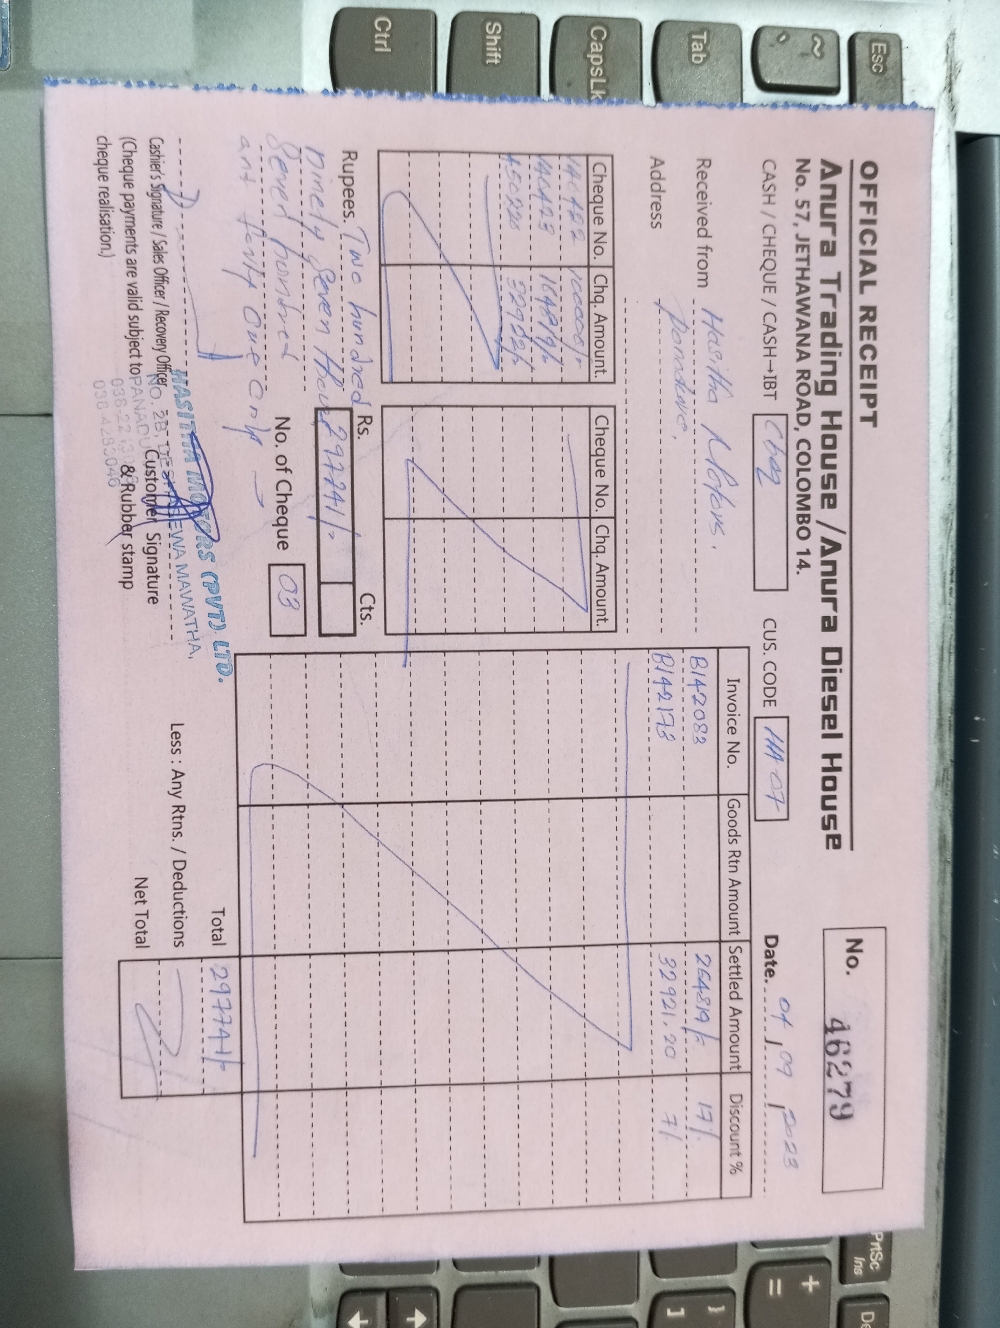 OFFICIAL RECEIPT
Anura Trading House / Anura Diesel House
No. 57, JETHAWANA ROAD, COLOMBO 14.
No. 46279
CASH / CHEQUE / CASH→IBT Cheq
CUS. CODE HA 07
Date. 04 / 09 / 2023
Received from Hasitha Motors.
Address
Cheque No. Chq. Amount.
100000/-
164819/-
32922/-
Cheque No. Chq. Amount.
Invoice No. Goods Rtn Amount Settled Amount Discount %
B142083 264819/- 17%
B142173 32921.20 7%
Rupees. Two hundred
ninety seven thous
Seven hundred
and forty one only
Rs. Cts.
297741/-
No. of Cheque 03
Total 297741/-
Less : Any Rtns. / Deductions
Net Total
Cashier's Signature / Sales Officer / Recovery Officer
(Cheque payments are valid subject to
cheque realisation.)
HASITHA MOTORS (PVT) LTD.
Customer Signature
& Rubber stamp
Esc
~
Tab
CapsLk
Shift
Ctrl
PrtSc
Ins
De
+
=
}
]